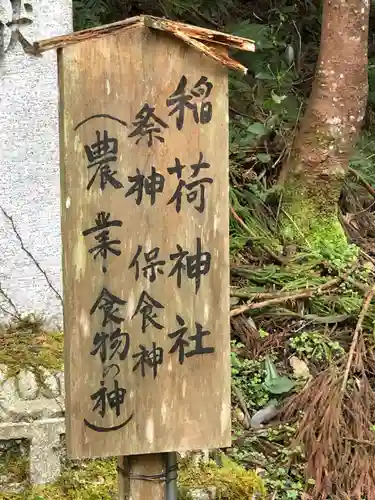 稲荷神社
祭神 保食神
(農業、食物の神)